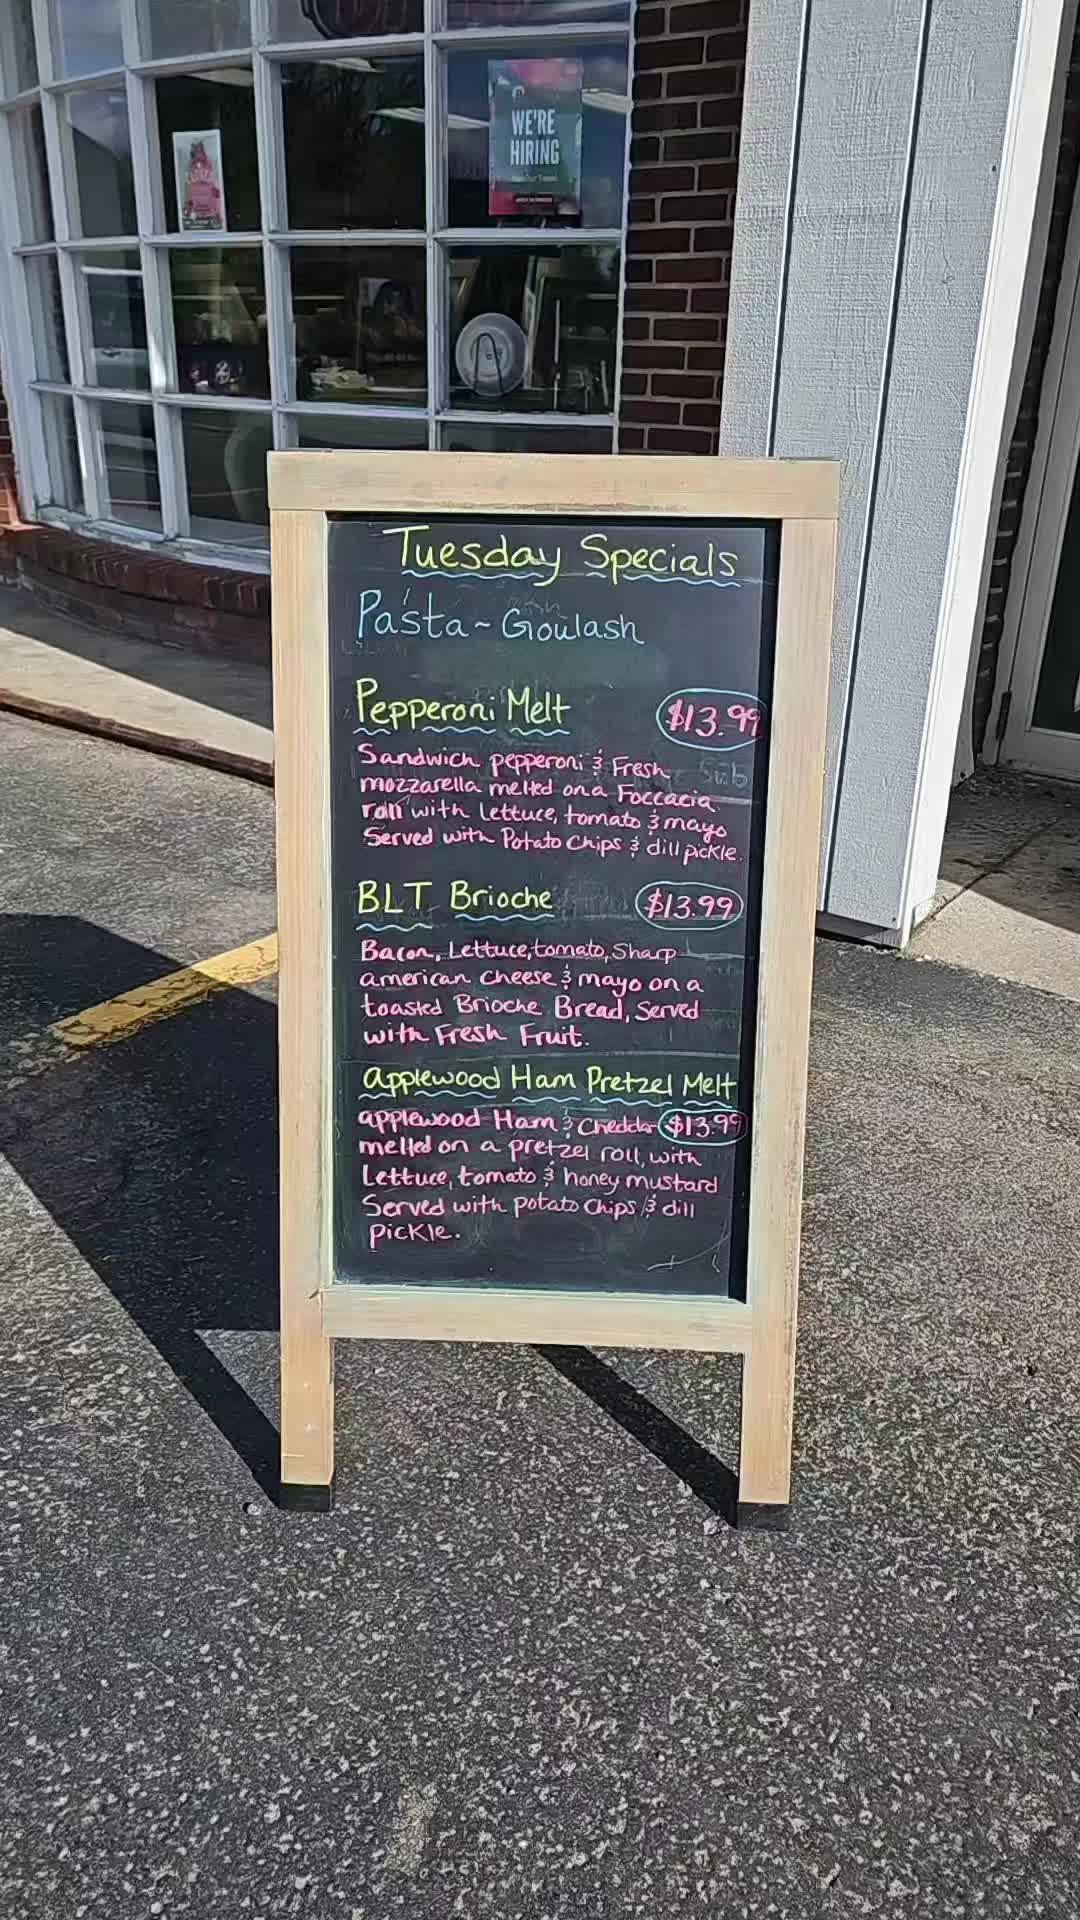 WE'RE
HIRING
Tuesday Specials
Pasta ~ Goulash
Pepperoni Melt $13.99
Sandwich pepperoni & Fresh
mozzarella melted on a Foccacia
roll with Lettuce, tomato & mayo
Served with Potato Chips & dill pickle.
BLT Brioche $13.99
Bacon, Lettuce, tomato, Sharp
american cheese & mayo on a
toasted Brioche Bread, Served
with Fresh Fruit.
applewood Ham Pretzel Melt
applewood Ham & Cheddar $13.99
melted on a pretzel roll, with
Lettuce, tomato & honey mustard
Served with potato Chips & dill
pickle.